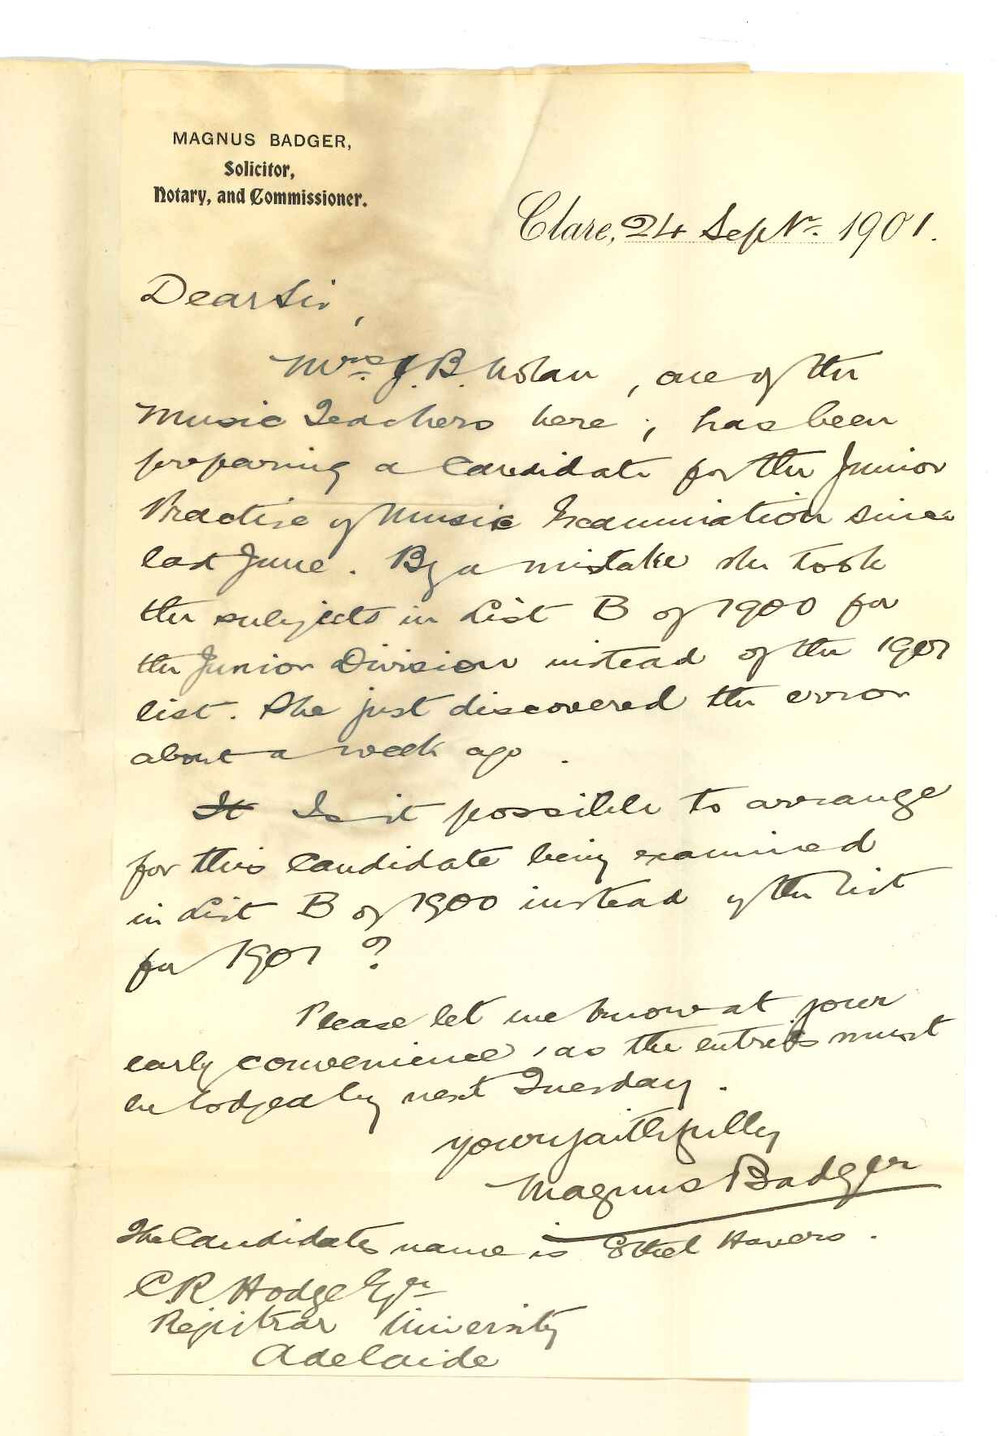 MAGNUS BADGER,
Solicitor,
Notary, and Commissioner.
Clare, 24 Septr. 1901.
Dear Sir,
Mrs. J. B. Nolan, one of the
Music Teachers here, has been
preparing a Candidate for the Junior
Practise of Music Examination since
last June. By a mistake she took
the subjects in List B of 1900 for
the Junior Division instead of the 1901
list. She just discovered the error
about a week ago.
It Is it possible to arrange
for this Candidate being examined
in List B of 1900 instead of the list
for 1901?
Please let me know at your
early convenience, as the entries must
be lodged by next Tuesday.
Yours faithfully
Magnus Badger
The Candidates name is Ethel Havers.
C R Hodge Esqr
Registrar University
Adelaide